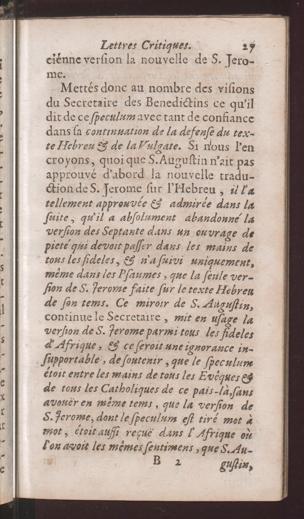 Lettres Critiques. 29
ciénne version la nouvelle de S. Jero-
me.
Mettés donc au nombre des visions
du Secretaire des Benedictins ce qu'il
dit de ce speculum avec tant de confiance
dans sa continuation de la defense du tex-
te Hebreu & de la Vulgate. Si nous l'en
croyons, quoi que S. Augustin n'ait pas
approuvé d'abord la nouvelle tradu-
ction de S. Jerome sur l'Hebreu, il l'a
tellement approuvée & admirée dans la
suite, qu'il a absolument abandonné la
version des Septante dans un ouvrage de
pieté qui devoit passer dans les mains de
tous les fideles, & n'a suivi uniquement,
même dans les Psaumes, que la seule ver-
sion de S. Jerome faite sur le texte Hebreu
de son tems. Ce miroir de S. Augustin,
continue le Secretaire, mit en usage la
version de S. Jerome parmi tous les fideles
d'Afrique, & ce seroit une ignorance in-
supportable, de soutenir, que le speculum
étoit entre les mains de tous les Evêques &
de tous les Catholiques de ce pais-là, sans
avouër en même tems, que la version de
S. Jerome, dont le speculum est tiré mot à
mot, étoit aussi reçuë dans l'Afrique où
l'on avoit les mêmes sentimens, que S. Au-
B 2 gustin,